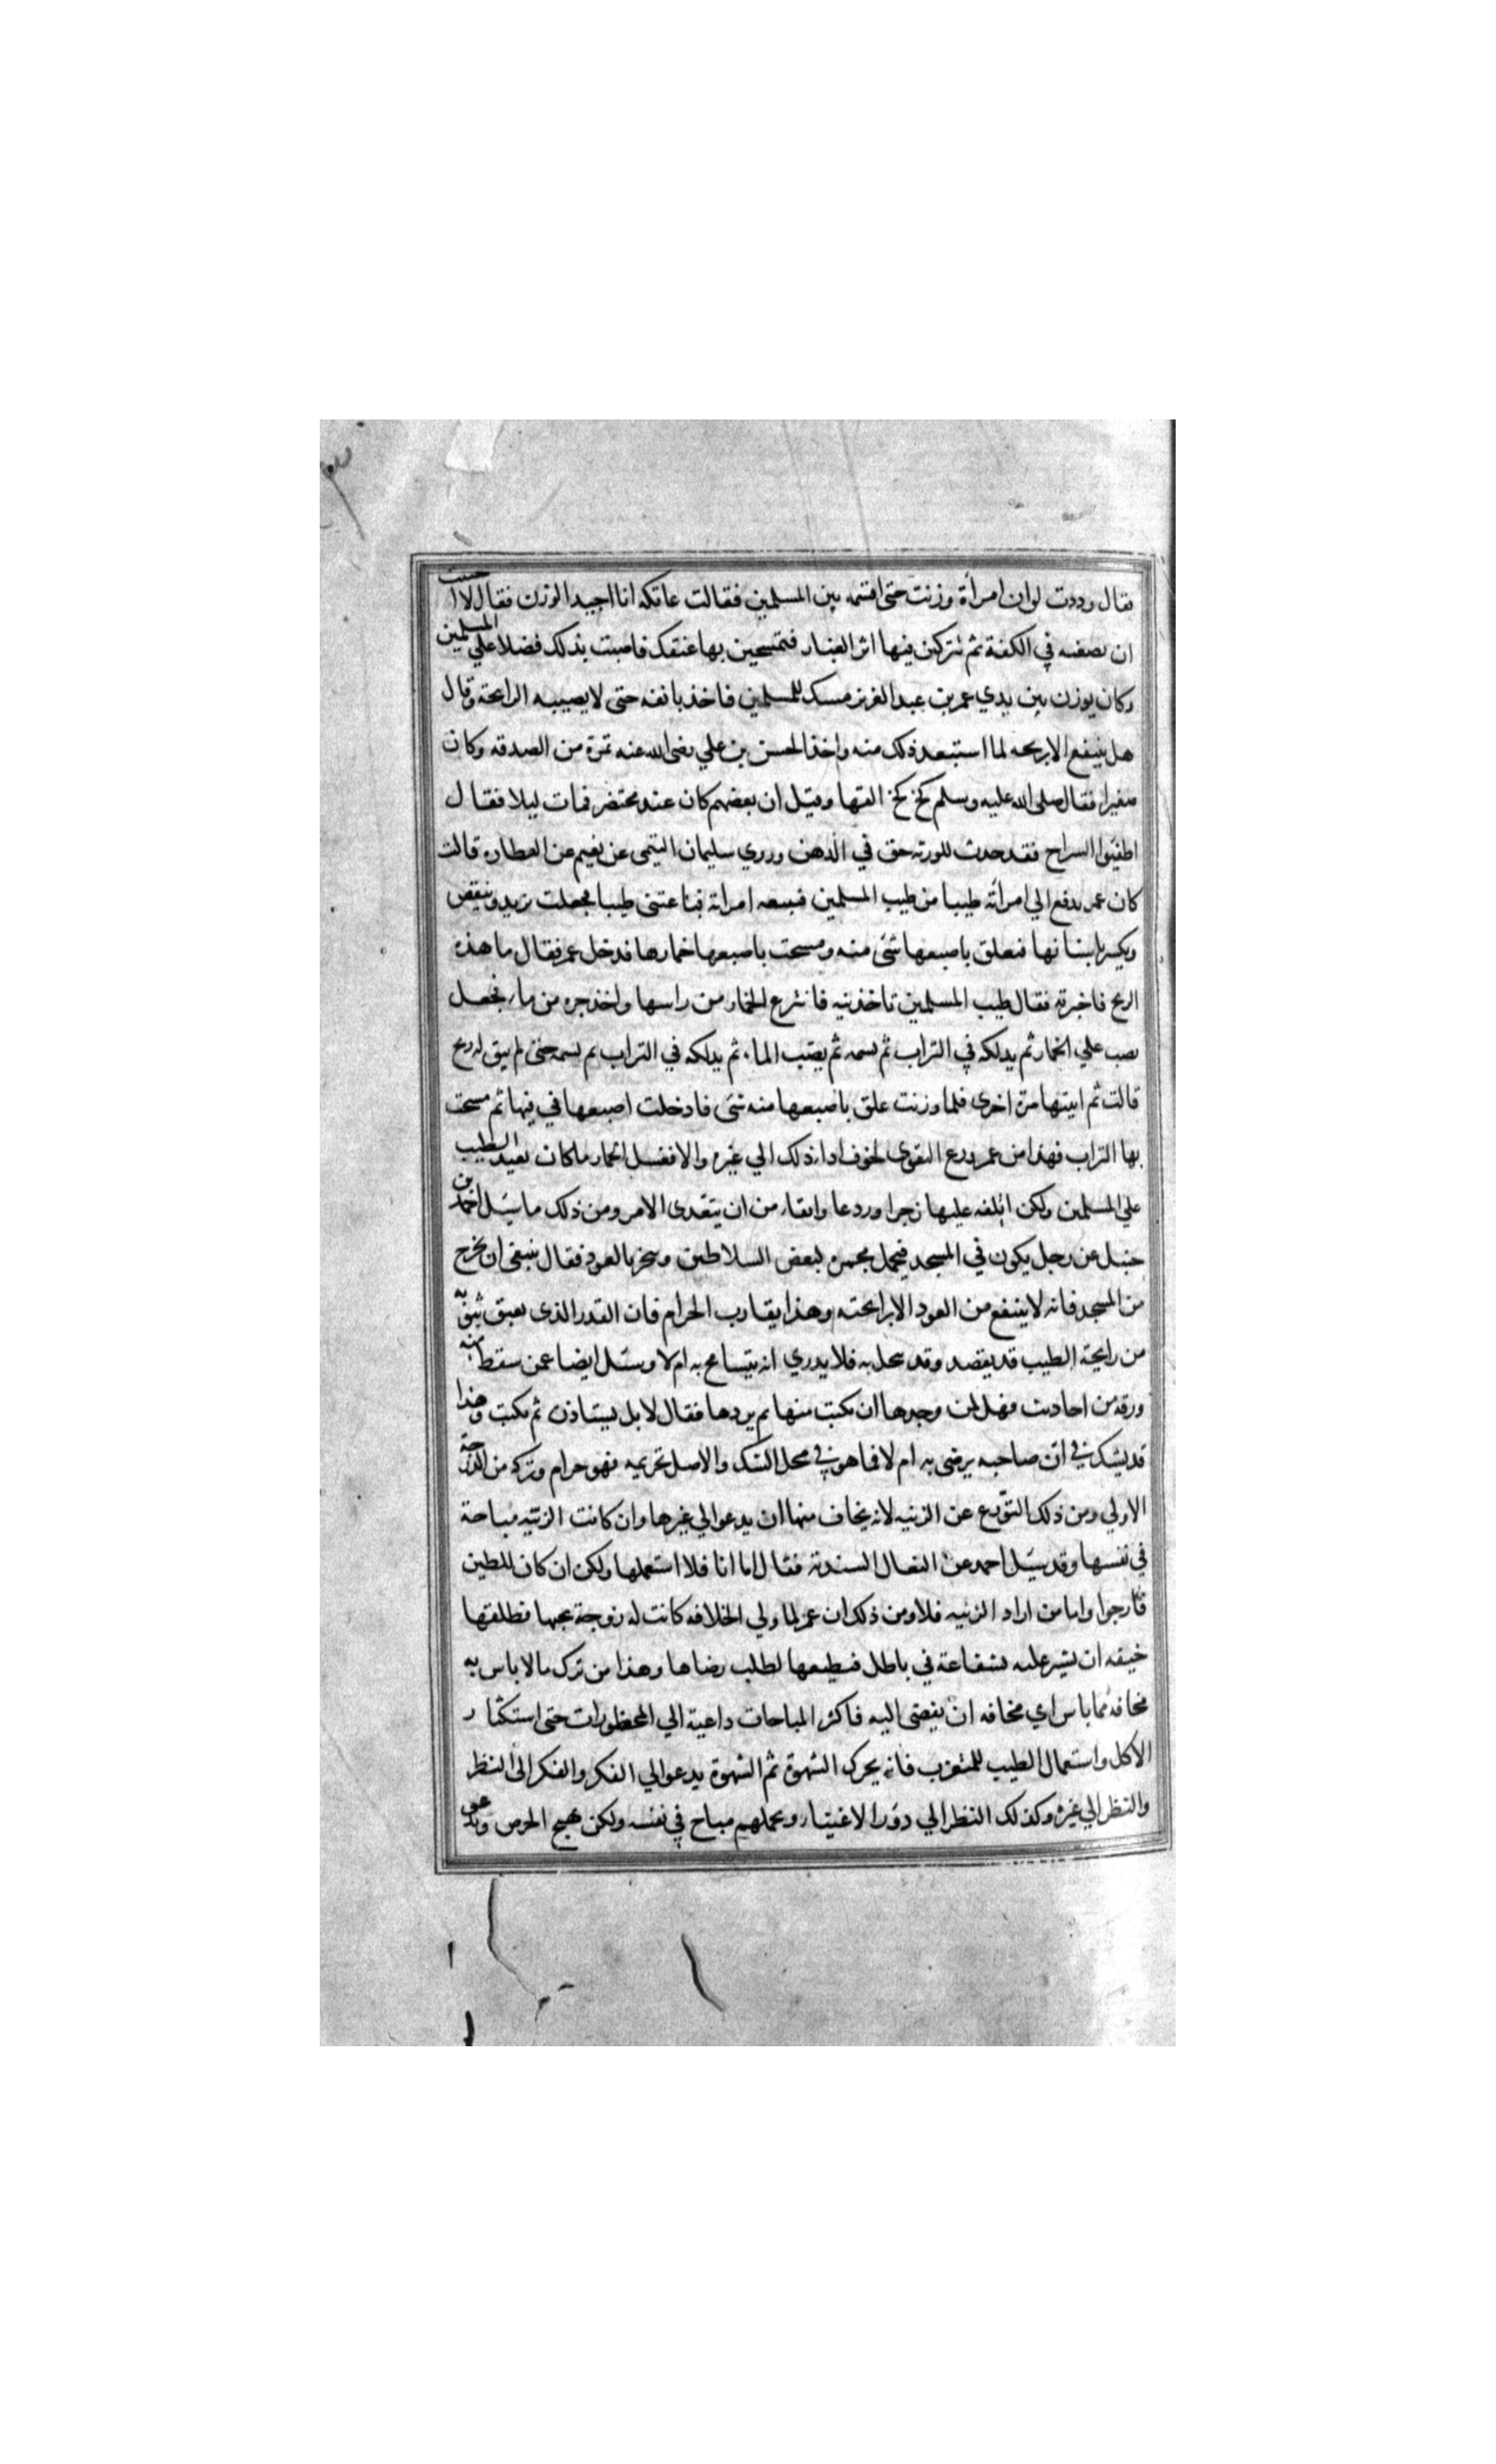 فقال وددت لو ان امراة وزنت حتى اقسمه بين المسلمين فقالت عاتكه انا اجيد الوزن فقال لا احببت
ان تضعه في الكفة ثم تتركين فيها اثر الغبار فتمسحين بها عنقك فاصبت بذلك فضلا علي المسلمين
وكان يوزن بين يدي عمر بن عبد العزيز مسك للمسلمين فاخذ بانفه حتى لا يصيبه الرايحة وقال
هل ينتفع الا بريحه لما استبعد ذلك منه واخذ الحسن بن علي رضى الله عنه تمرة من الصدقه وكان
صغيرا فقال صلى الله عليه وسلم كخ كخ القها وقيل ان بعضهم كان عند محتضر فمات ليلا فقال
اطفئوا السراج فقد حدث للورثه حق في الدهن وروي سليمان التيمى عن نعيم عن العطاره قالت
كان عمر يدفع الي امراته طيبا من طيب المسلمين فتبيعه امراته فباعتنى طيبا فجعلت تزيد وتنقص
وتكسر باسنانها فتعلق باصبعها شئ منه ومسحت باصبعها خمارها فدخل عمر فقال ما هذه
الريح فاخبرته فقال طيب المسلمين تاخذنيه فانتزع الخمار من راسها واخذ جره من ماء فجعل
يصب علي الخمار ثم يدلكه في التراب ثم يشمه ثم يصب الماء ثم يدلكه في التراب ثم يشمه حتى لم يبق له ريح
قالت ثم اتيتها مرة اخرى فلما وزنت علق باصبعها منه شئ فادخلت اصبعها في فيها ثم مسحت
بها التراب فهذا من عمر ورع التقوى لخوف اداء ذلك الي غيره والا فغسل الخمار ما كان يعيد الطيب
علي المسلمين ولكن اتلفه عليها زجرا وردعا واتقاء من ان يتعدى الامر ومن ذلك ما سئل احمد بن
حنبل عن رجل يكون في المسجد فيحمل مجمرة لبعض السلاطين وتبخر بالعود فقال ينبغى ان يخرج
من المسجد فانه لا ينتفع من العود الا برايحته وهذا يقارب الحرام فان القدر الذى يعبق بثوبه
من رايحة الطيب قد يقصد وقد يبخل به فلا يدري انه يتسامح به ام لا وسئل ايضا عمن سقط منه
ورقة من احاديث فهل لمن وجدها ان يكتب منها ثم يردها فقال لا بل يستاذن ثم يكتب وهذا
قد يشك في ان صاحبه يرضى به ام لا فما هو في محل الشك والاصل تحريمه فهو حرام وتركه من الدرجة
الاولي ومن ذلك التورع عن الزينه لانه يخاف منها ان يدعو الي غيرها وان كانت الزينه مباحة
في نفسها وقد سئل احمد عن النعال السندية فقال اما انا فلا استعملها ولكن ان كان للطين
فارجوا واما من اراد الزينه فلا ومن ذلك ان عمر لما ولي الخلافه كانت له زوجة يحبها فطلقها
خيفه ان تشير عليه بشفاعة في باطل فيطيعها لطلب رضاها وهذا من ترك ما لا باس به
مخافة مما باس اي مخافه ان يفضى اليه فاكثر المباحات داعية الي المحظورات حتى استكثار
الاكل واستعمال الطيب للمتعزب فانه يحرك الشهوة ثم الشهوة يدعو الي الفكر والفكر الى النظر
والنظر الي غيره وكذلك النظر الي دور الاغنيا وتجملهم مباح في نفسه ولكن يهيج الحرص ويدعو